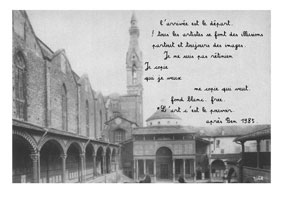 l'arrivée est le départ.
! tous les artistes se font des illusions
partout et toujours des images.
Je ne suis pas rétinien
Je copie
que je veux
me copie qui veut.
fond blanc. free.
"L'art c'est le pouvoir
après Ben 1985.